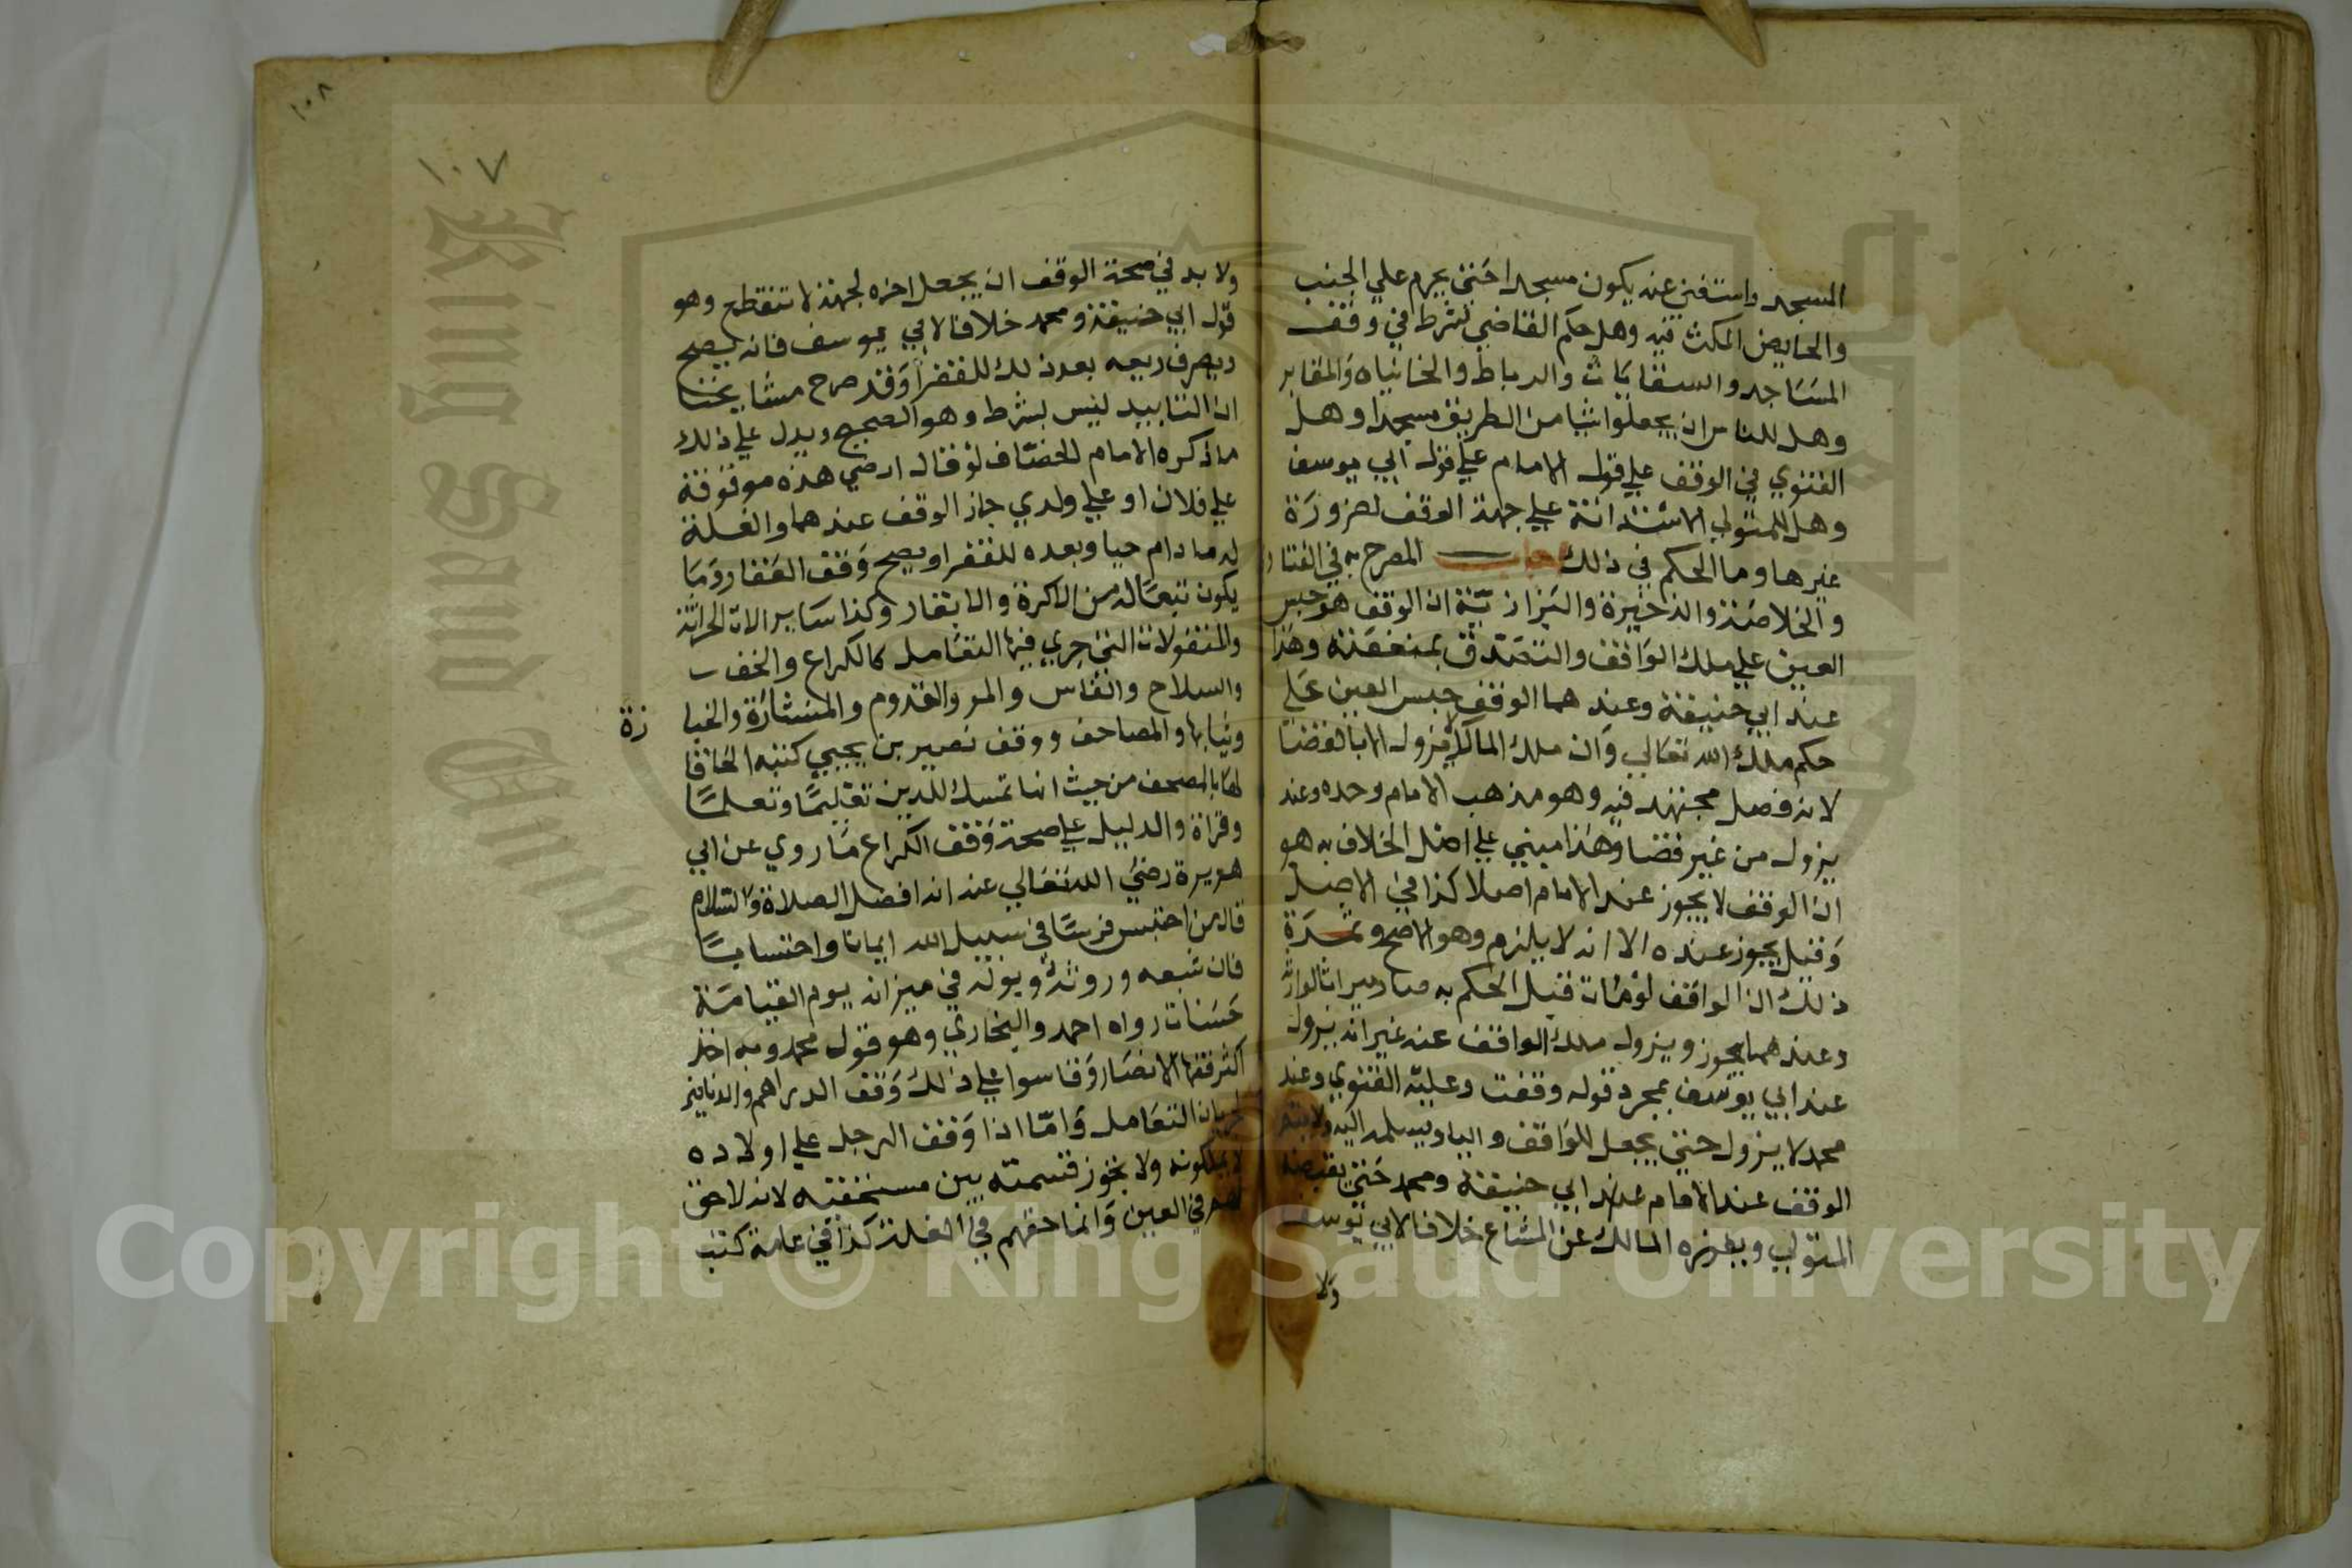 المسجد واستغني عنه يكون مسجدا حتي يحرم علي الجنب
والحايض المكث فيه وهل حكم القاضي بشرط في وقف
المساجد والسقايات والرباط والخانياه والمقابر
وهل للناس ان يجعلوا شيا من الطريق مسجدا وهل
الفتوي في الوقف علي قول الامام علي قول ابي يوسف
وهل للمتولي الاستدانة علي جهة الوقف لضرورة
غيرها وما الحكم في ذلك اجاب المصرح به في الفتاو
والخلاصة والذخيرة والبزازية ان الوقف هو حبس
العين علي ملك الواقف والتصدق بمنفعته وهذا
عند ابي حنيفة وعندهما الوقف حبس العين علي
حكم ملك الله تعالي وان ملك المالك لا يزول الا بالقضا
لانه فصل مجتهد فيه وهو مذهب الامام وحده وعند
يزول من غير قضا وهذا مبني علي اصل الخلاف به هو
ان الوقف لا يجوز عند الامام اصلا كذا في الاصل
وقيل يجوز عنده الا انه لا يلزم وهو الاصح وثمرة
ذلك ان الواقف لو مات قبل الحكم به صار ميراثا لوارثه
وعندهما يجوز ويزول ملك الواقف عنه غير انه يزول
عند ابي يوسف بمجرد قوله وقفت وعليه الفتوي وعند
محمد لا يزول حتي يجعل للواقف واليا ويسلمه اليه ولا يتم
الوقف عند الامام عند ابي حنيفة ومحمد حتي يقبضه
المتولي ويفرزه المالك عن المشاع خلافا لابي يوسف
ولا
١٠٨
١٠٧
ولا بد في صحة الوقف ان يجعل اخره لجهة لا تنقطع وهو
قول ابي حنيفة ومحمد خلافا لابي يوسف فانه يصح
ويصرف ريعه بعد ذلك للفقرا وقد صرح مشايخنا
ان التابيد ليس بشرط وهو الصحيح ويدل علي ذلك
ما ذكره الامام الخصاف لو قال ارضي هذه موقوفة
علي فلان او علي ولدي جاز الوقف عندهما والغلة
له ما دام حيا وبعده للفقرا ويصح وقف العقار وما
يكون تبعا له من الاكرة والابقار وكذا ساير الات الحراثة
والمنقولات التي جري فيها التعامل كالكراع والخف
والسلاح والفاس والمر والقدوم والمنشارة والجنا
زة
وثيابها والمصاحف ووقف نصير بن يحيي كتبه الحاقا
لها بالمصحف من حيث انها تمسك للدين تعليما وتعلما
وقراة والدليل علي صحة وقف الكراع ما روي عن ابي
هريرة رضي الله تعالي عنه انه افضل الصلاة والسلام
قال من احتبس فرسا في سبيل الله ايمانا واحتسابا
فان شبعه وروثه وبوله في ميزانه يوم القيامة
حسنات رواه احمد والبخاري وهو قول محمد وبه اخذ
اكثر فقها الامصار وقاسوا علي ذلك وقف الدراهم والدنانير
لجريان التعامل واما اذا وقف الرجل علي اولاده
لا يملكونه ولا يجوز قسمته بين مستحقيه لانه لا حق
لهم في العين وانما حقهم في الغلة كذا في عامة كتب
Copyright © King Saud University